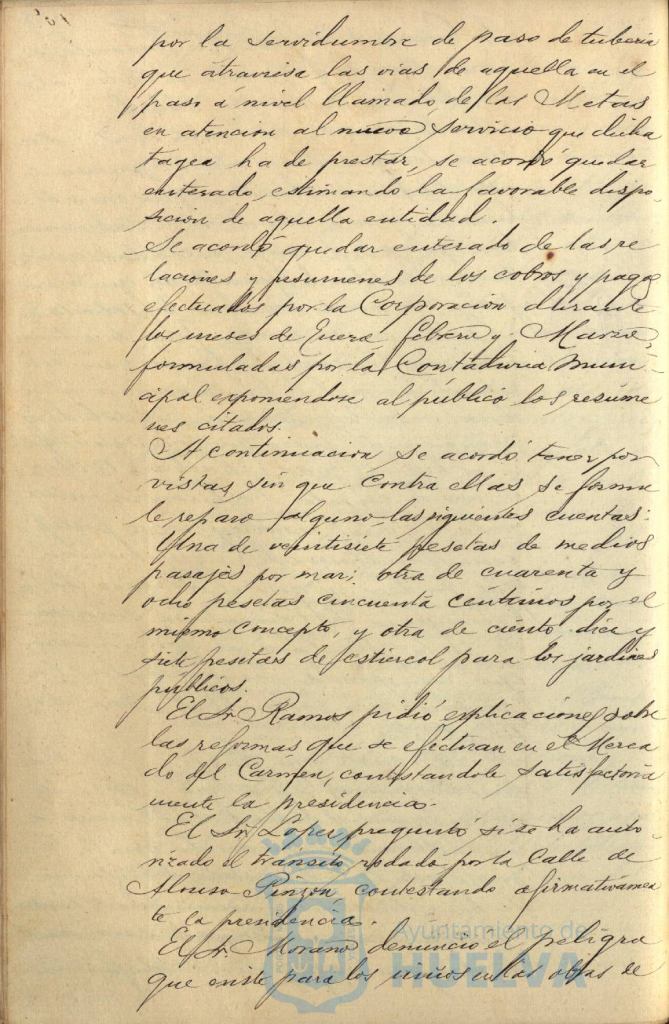 por la servidumbre de paso de tuberia
que atraviesa las vias de aquella en el
paso á nivel llamado de las Metas
en atencion al nuevo servicio que dicha
tagea ha de prestar, se acordó quedar
enterado, estimando la favorable dispo-
sicion de aquella entidad.
Se acordó quedar enterado de las re
laciones y resumenes de los cobros y pagos
efectuados por la Corporación durante
los meses de Enero, Febrero y Marzo,
formuladas por la Contaduria Muni-
cipal exponiendose al público los resúme
nes citados.
A continuacion se acordó tener por
vistas, sin que contra ellas se formu
le reparo alguno las siguientes cuentas:
Una de veintisiete pesetas de medios
pasajes por mar; otra de cuarenta y
ocho pesetas cincuenta céntimos por el
mismo concepto, y otra de ciento diez y
siete pesetas de estiercol para los jardines
públicos.
El Sr. Ramos pidió explicaciones sobre
las reformas que se efectuan en el Merca
do del Carmen, contestandole satisfactoria
mente la presidencia.
El Sr. Lopez preguntó si se ha auto-
rizado el tránsito rodado por la Calle de
Alonso Pinzon contestando afirmativamen
te la presidencia.
El Sr. Morano denunció el peligro
que existe para los niños en las obras de
Ayuntamiento de
HUELVA